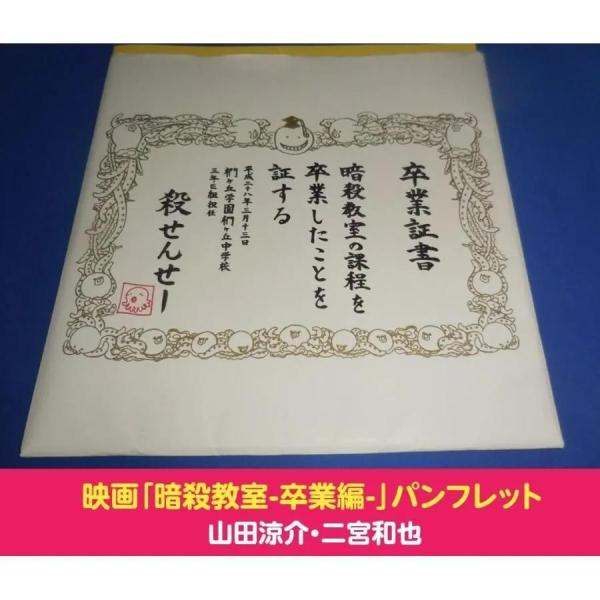 卒業証書
暗殺教室の課程を
卒業したことを
証する
平成二十八年三月十三日
椚ヶ丘学園椚ヶ丘中学校
三年E組担任
殺せんせー
映画「暗殺教室-卒業編-」パンフレット
山田涼介・二宮和也